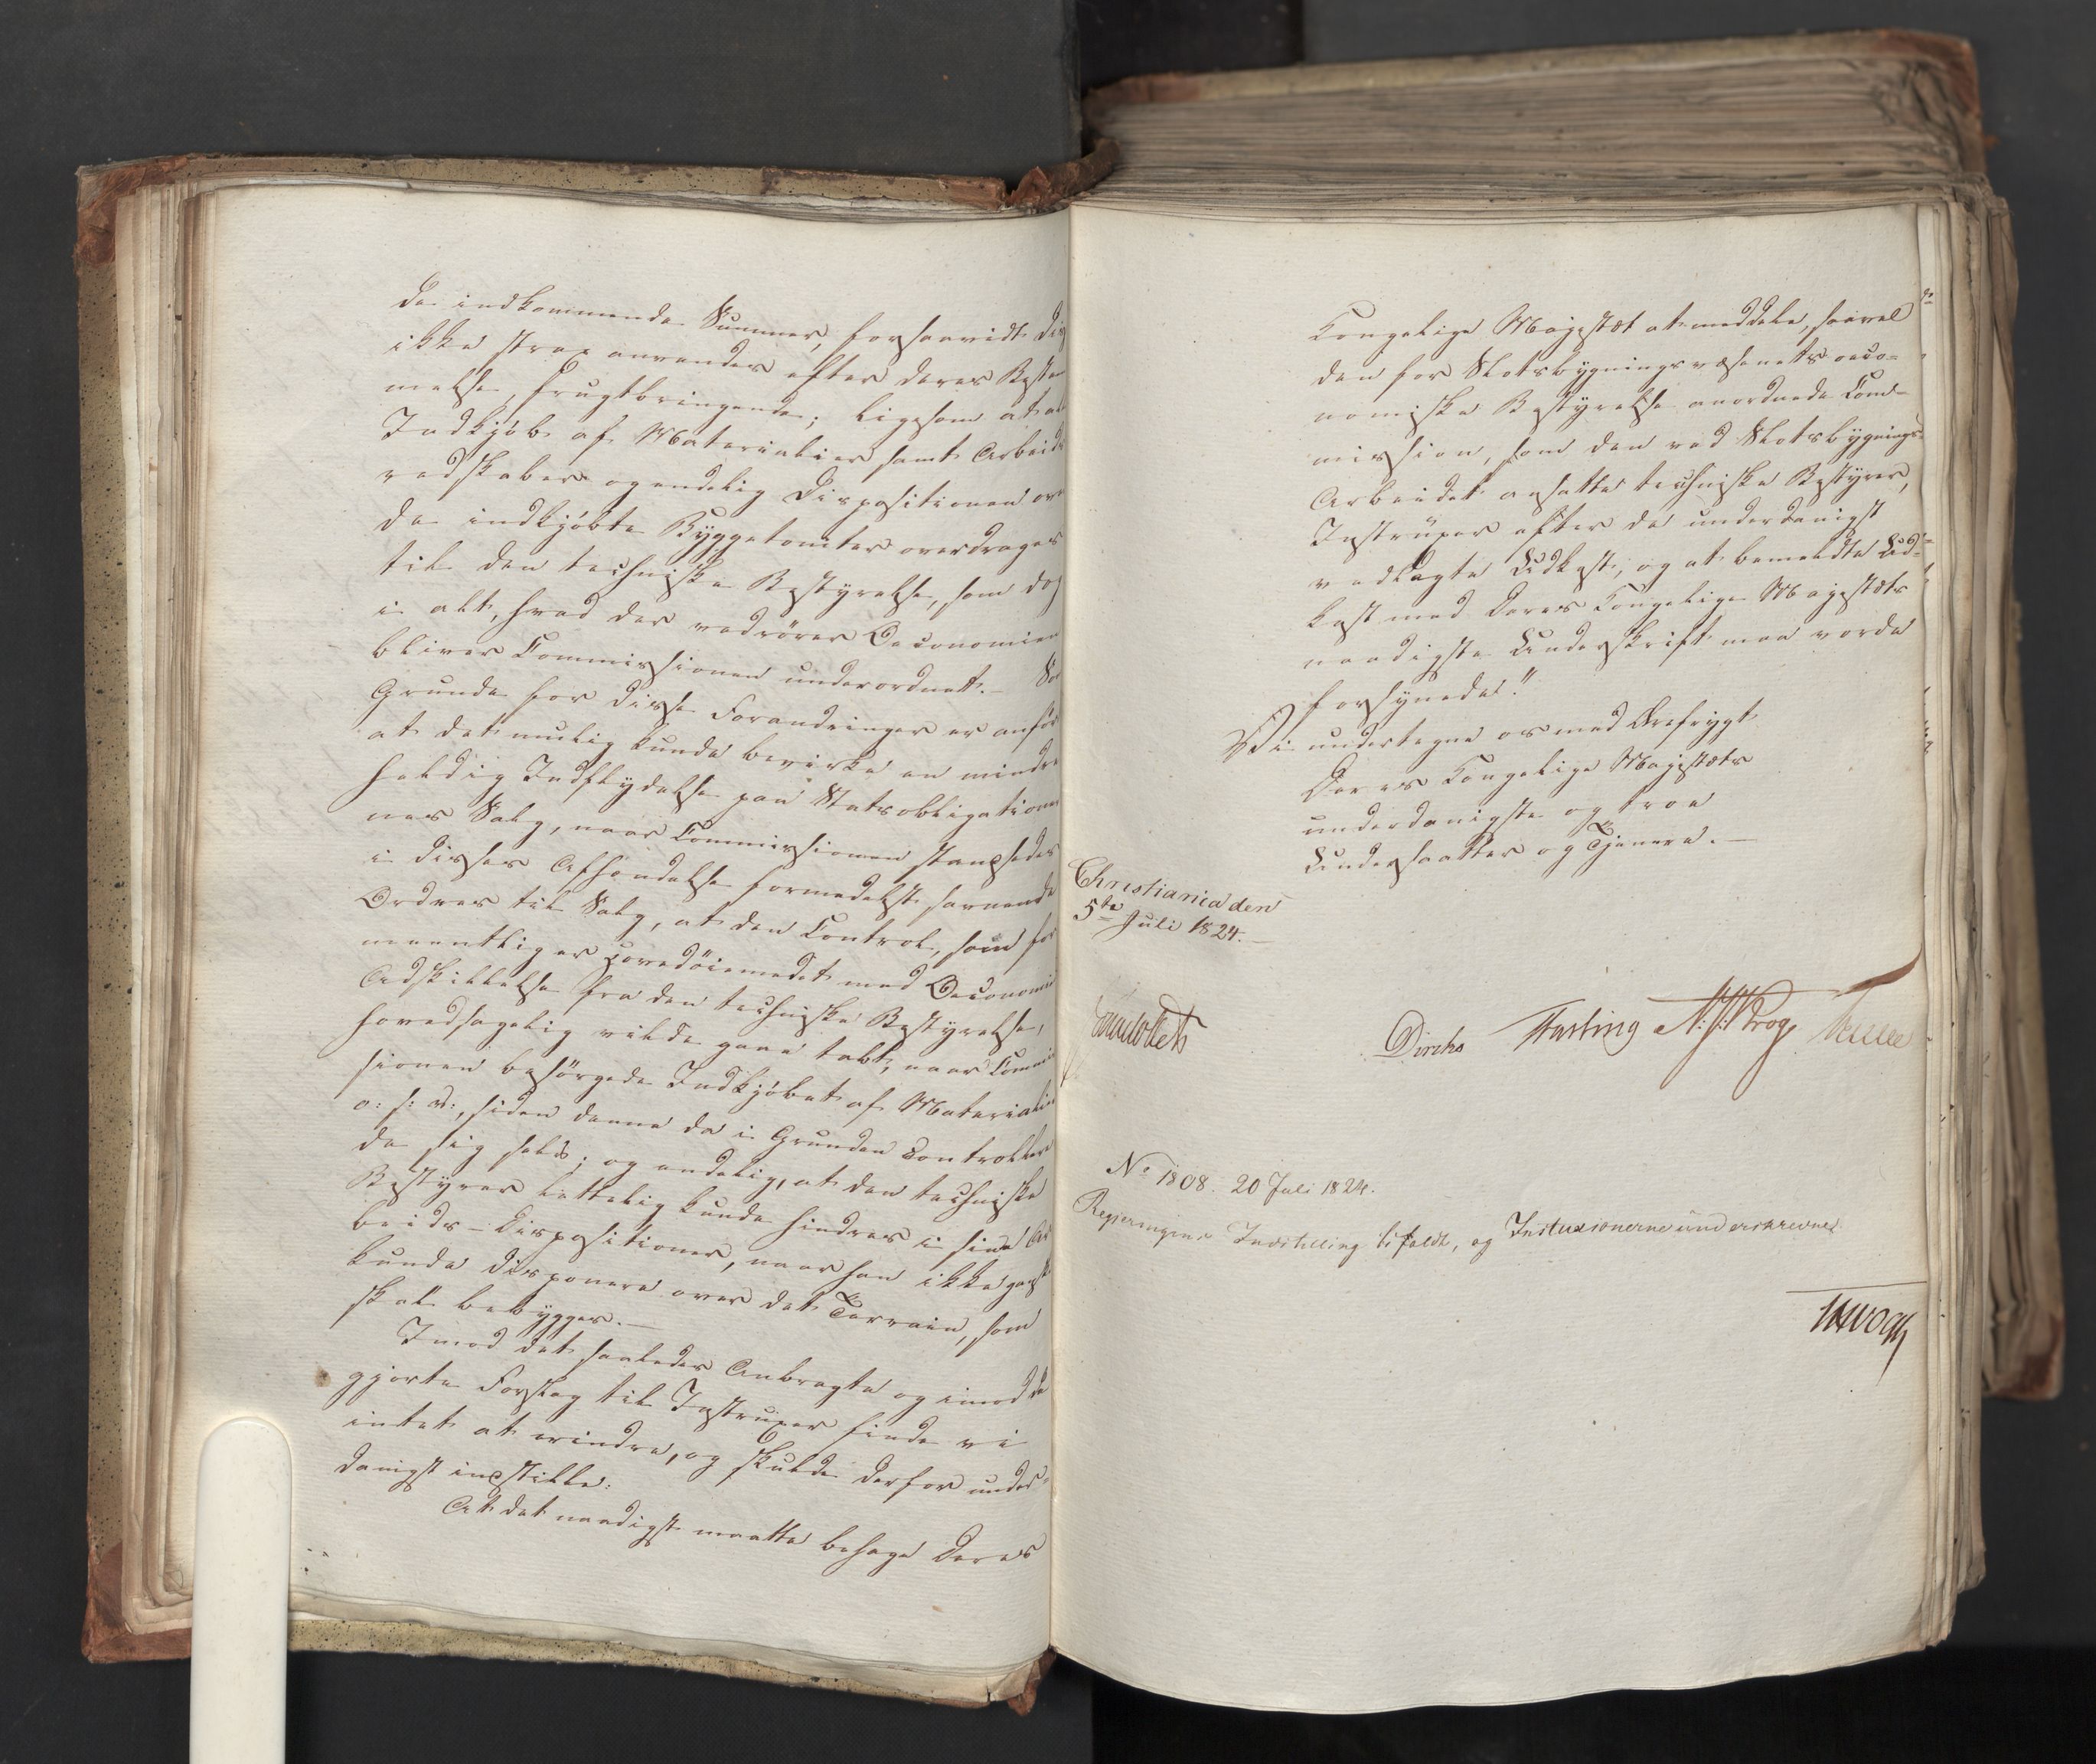 de indkommende Summer, forsaavidt dis
ikke strax anvendes efter deres Bestem
melse, frugtbringende; ligesom at al
Indkjöb af Materialier samt Arbeids
redskaber og endelig Dispositionen over
de indkjöbte Byggetomter overdrages
til den techniske Bestyrelse, som dog
i alt, hvad der vedrörer Oeconomien
bliver Commissionen underordnet. – Som
Grunde for disse Forandringer er anför
at det muelig kunde bevirke en mindre
heldig Indflydelse paa Statsobligatione
nes Salg, naar Commissionen standsedes
i disses Afhændelse formedelst savnende
Ordres til Salg, at den Control, som for
meentlig er Hovedöiemedet med Oeconomie
Adskillelse fra den techniske Bestyrelse,
hovedsagelig vilde gaae tabt, naar Commis
sionen besörgede Indkjöbet af Materialier
o: s: v:, siden denne da i Grunden controller
de sig selv; og endelig, at den techniske
Bestyrer lettelig kunde hindres i sine Ar
beids-Dispositioner, naar han ikke ganske
kunde disponere over det Terrain, som
skal bebygges. —
Imod det saaledes Anbragte og imod de
gjorte Forslag til Instruxer finde vi
intet at erindre, og skulde derfor under=
danigst indstille:
At det naadigst maatte behage Deres
Kongelige Majestæt at meddele, saavel
den for Slotsbygningsvæsenets oeco=
nomiske Bestyrelse anordnede Com=
mission, som den ved Slotsbygnings
Arbeidet ansatte techniske Bestyrer,
Instruxer efter de underdanigst
vedlagte Udkast, og at bemeldte Ud=
kast med Deres Kongelige Majestæts
naadigste Underskrift maa vorde
forsynede!"
Vi undertegne os med Ærefrygt
Deres Kongelige Majestæts
underdanigste og troe
Undersaatter og Tjenere. —
Christiania den
5te Juli 1824. —
Diriks
N: J: Krog
No 1808. 20 Juli 1824.
Regjeringens Indstilling bifaldt, og Instuxionerne underskrevne.